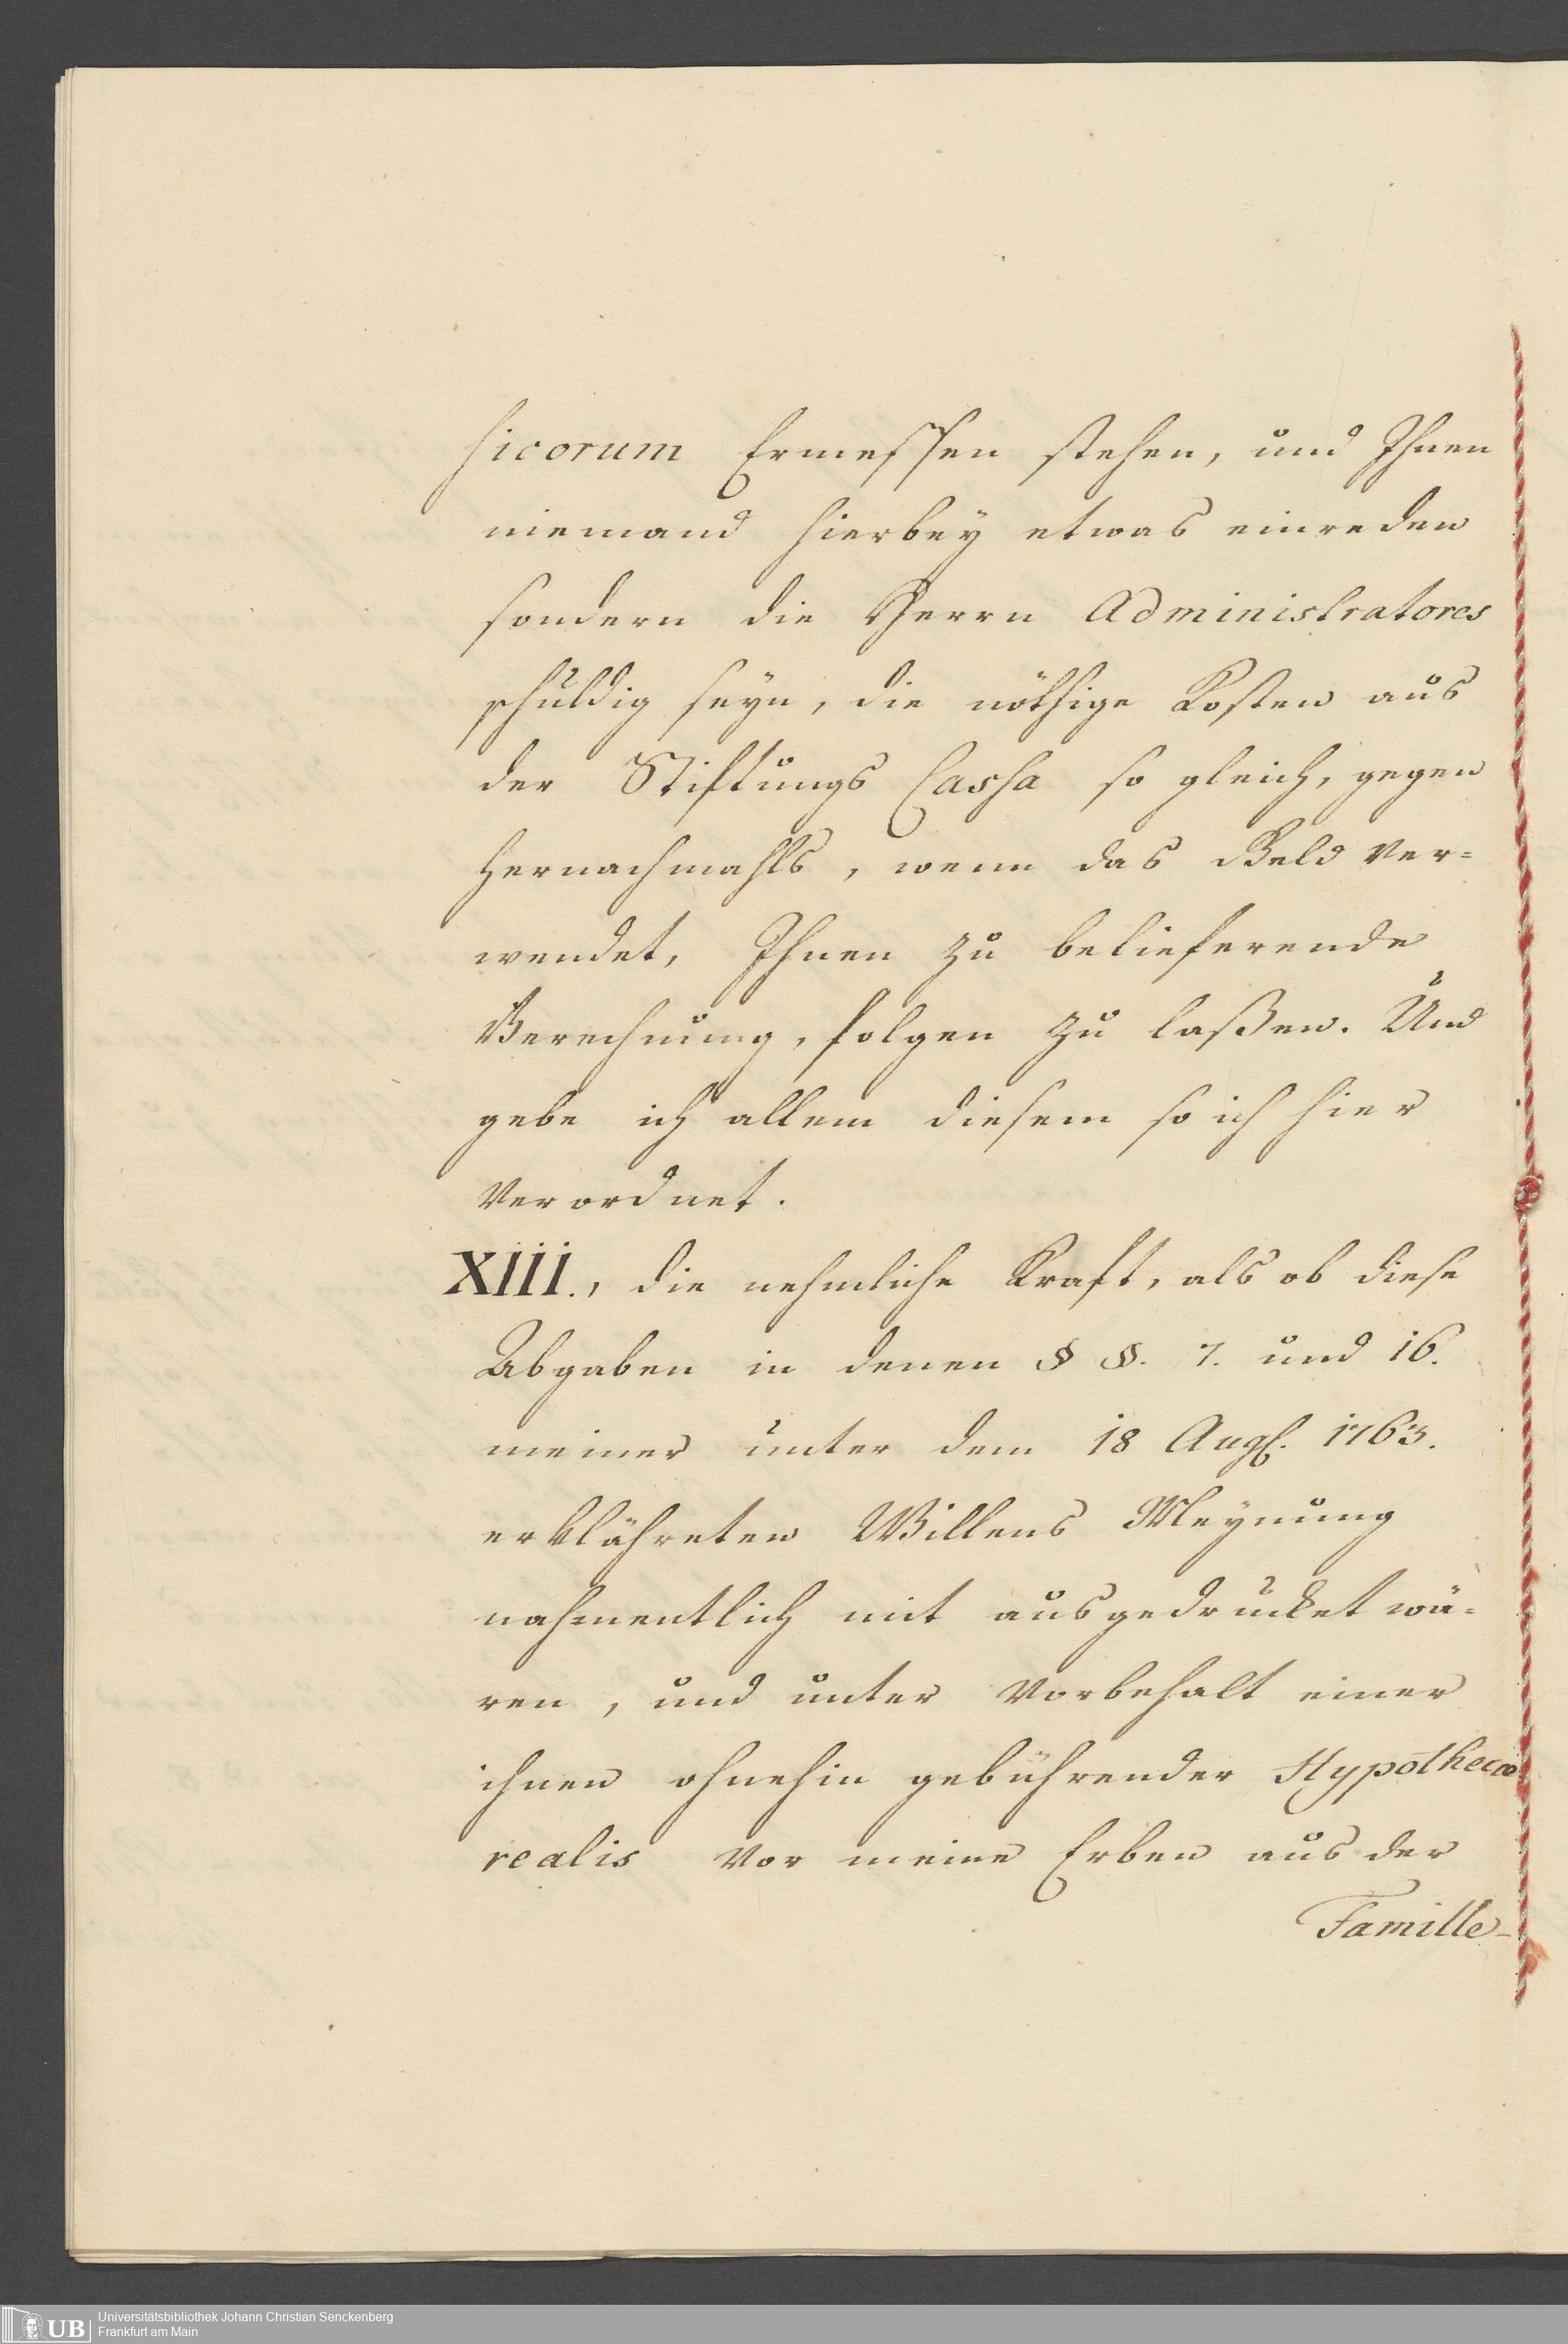 sicorum Ermessen stehen, und Ihnen
niemand hierbey etwas einreden
sondern die Herrn Administratores
schuldig seyn, die nöthige Kosten aus
der Stiftungs Cassa so gleich, gegen
hernachmahls, wenn das Geld ver=
wendet, Ihnen zu belieferende
Berechnung, folgen zu laßen. Und
gebe ich allem diesem so ich hier
verordnet.
XIII., die nehmliche Kraft, als ob diese
Abgaben in denen § §. 7. und 16.
meiner unter dem 18 Augs. 1763.
erklährten Willens Meynung
nahmentlich mit ausgedrucket wä=
ren, und unter Vorbehalt einer
ihnen ohnehin gebührender Hypothecæ
realis vor meine Erben aus der
Famille-
UB Universitätsbibliothek Johann Christian Senckenberg
Frankfurt am Main